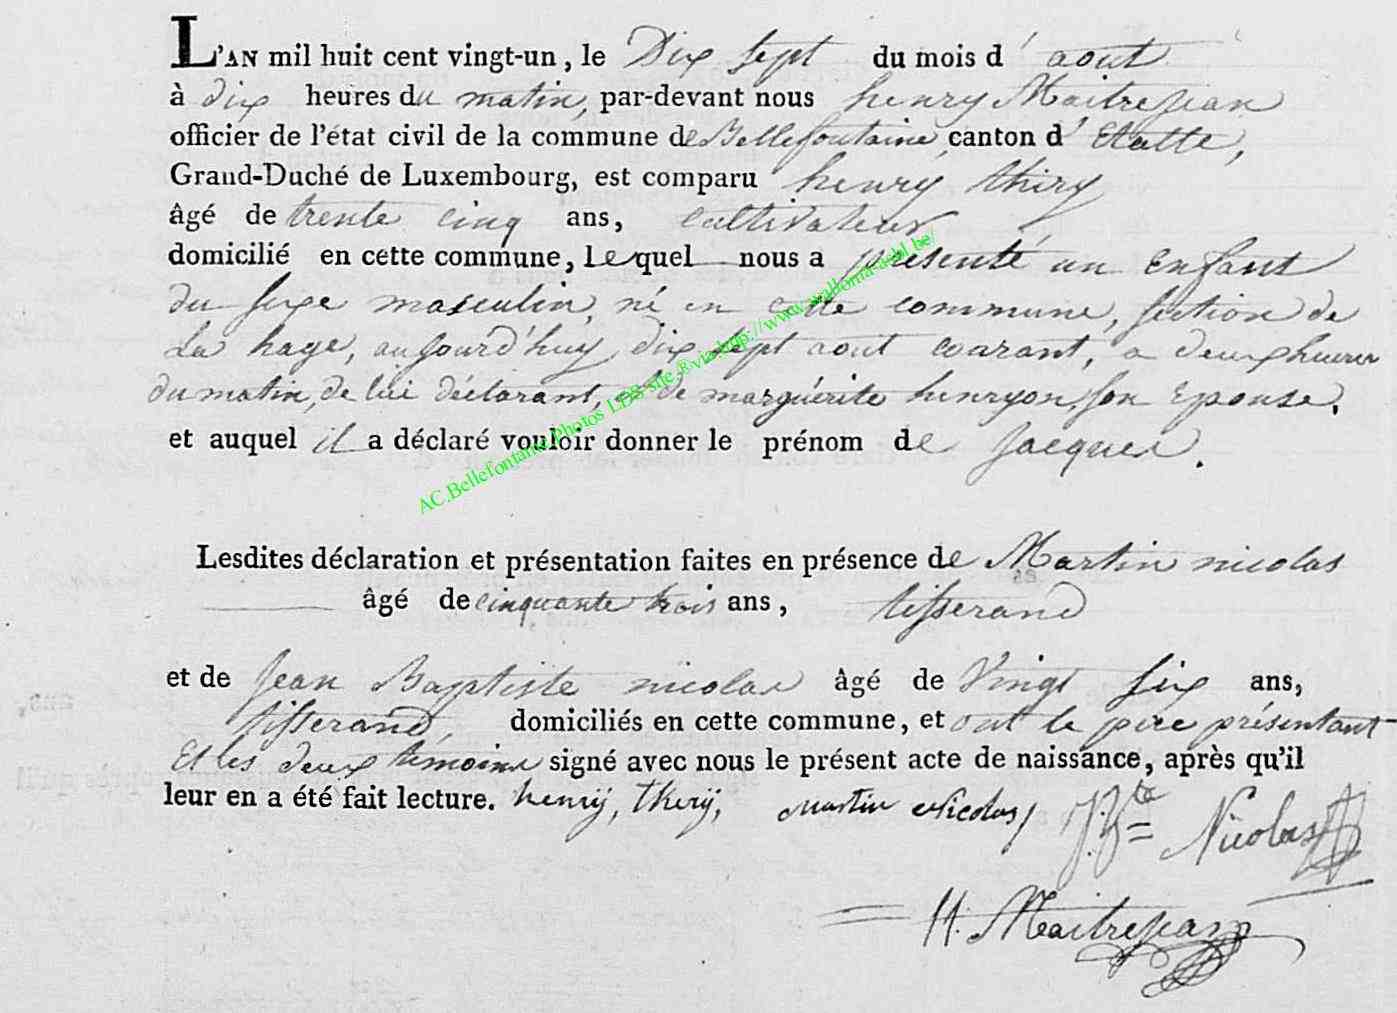 L'AN mil huit cent vingt-un, le Dix sept du mois d'aout
à dix heures du matin, par-devant nous henry Maitrejean
officier de l'état civil de la commune de Bellefontaine, canton d'Etalle,
Grand-Duché de Luxembourg, est comparu henry thiry
âgé de trente cinq ans, cultivateur
domicilié en cette commune, Lequel nous a présenté un enfant
du sexe masculin, né en cette commune, section de
La hage, aujourd'huy dix sept aout courant, a deux heures
du matin, de lui déclarant, et de marguérite henryon, son Epouse,
et auquel il a déclaré vouloir donner le prénom de Jacques.
AC.Bellefontaine Photos LDS site ®via http://www.wallonia-debl.be/
Lesdites déclaration et présentation faites en présence de Martin nicolas
âgé de cinquante trois ans, tisserand
et de Jean Baptiste nicolas âgé de Vingt six ans,
tisserand, domiciliés en cette commune, et ont le père présentant
Et les deux témoins signé avec nous le présent acte de naissance, après qu'il
leur en a été fait lecture. henrÿ, thirÿ, Martin Nicolas, J. Bte Nicolas
H. Maitrejean